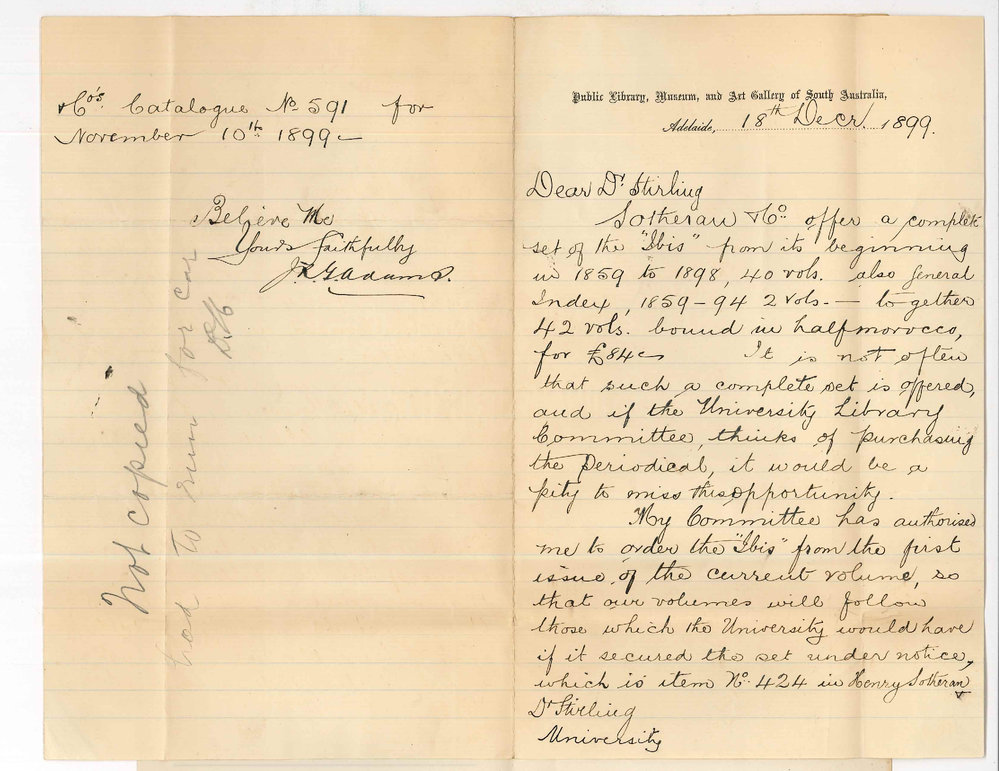 Public Library, Museum, and Art Gallery of South Australia,
Adelaide, 18th Decr. 1899.
Dear Dr Stirling
Sotheran & Co. offer a complete
set of the "Ibis" from its beginning
in 1859 to 1898, 40 vols. also General
Index, 1859-94 2 vols. — together
42 vols. bound in half morocco,
for £84
It is not often
that such a complete set is offered,
and if the University Library
Committee, thinks of purchasing
the periodical, it would be a
pity to miss this opportunity.
My Committee has authorised
me to order the "Ibis" from the first
issue, of the current volume, so
that our volumes will follow
those which the University would have
if it secured the set under notice,
which is item No. 424 in Henry Sotheran
Dr Stirling
University
& Co's. Catalogue No. 591 for
November 10th 1899
Believe Me
Yours faithfully
J.R.G. Adams.
Not copied
had to run for car